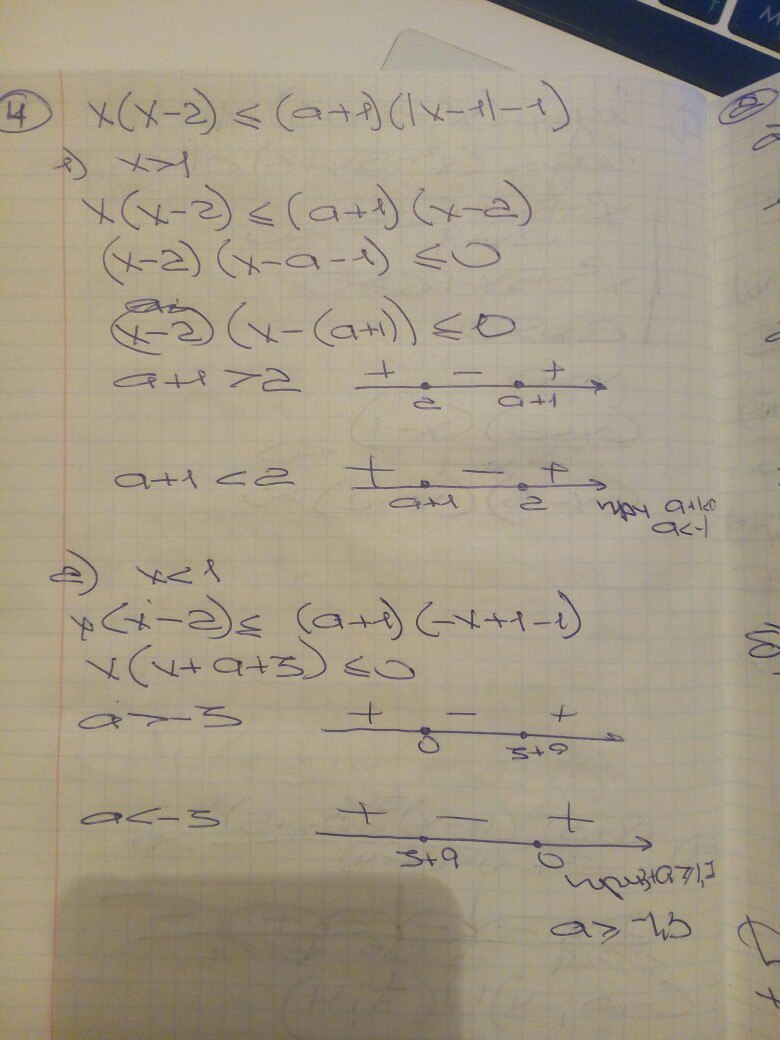 4 x(x-2) ≤ (a+1)(|x-1|-1)
1) x>1
x(x-2) ≤ (a+1)(x-2)
(x-2)(x-a-1) ≤ 0
(x-2)(x-(a+1)) ≤ 0
a+1 > 2 + - +
2 a+1
a+1 < 2 + - +
a+1 2 при a+1<0
a<-1
2) x<1
x(x-2) ≤ (a+1)(-x+1-1)
x(x+a+3) ≤ 0
a>-3 + - +
0 3+a
a<-3 + - +
3+a 0
a ≥ -1,3